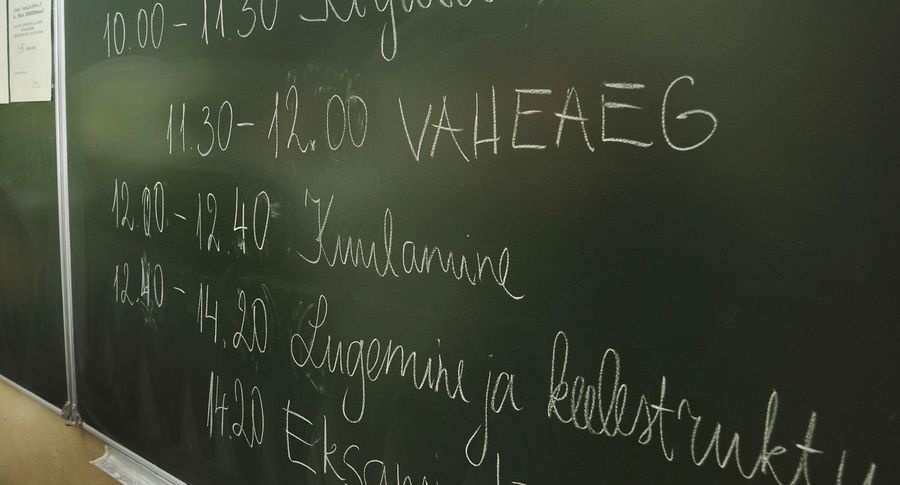 10.00 - 11.30
11.30 - 12.00 VAHEAEG
12.00 - 12.40 Kuulamine
12.40 - 14.20 Lugemine ja keelestruktu
14.20 Eksami